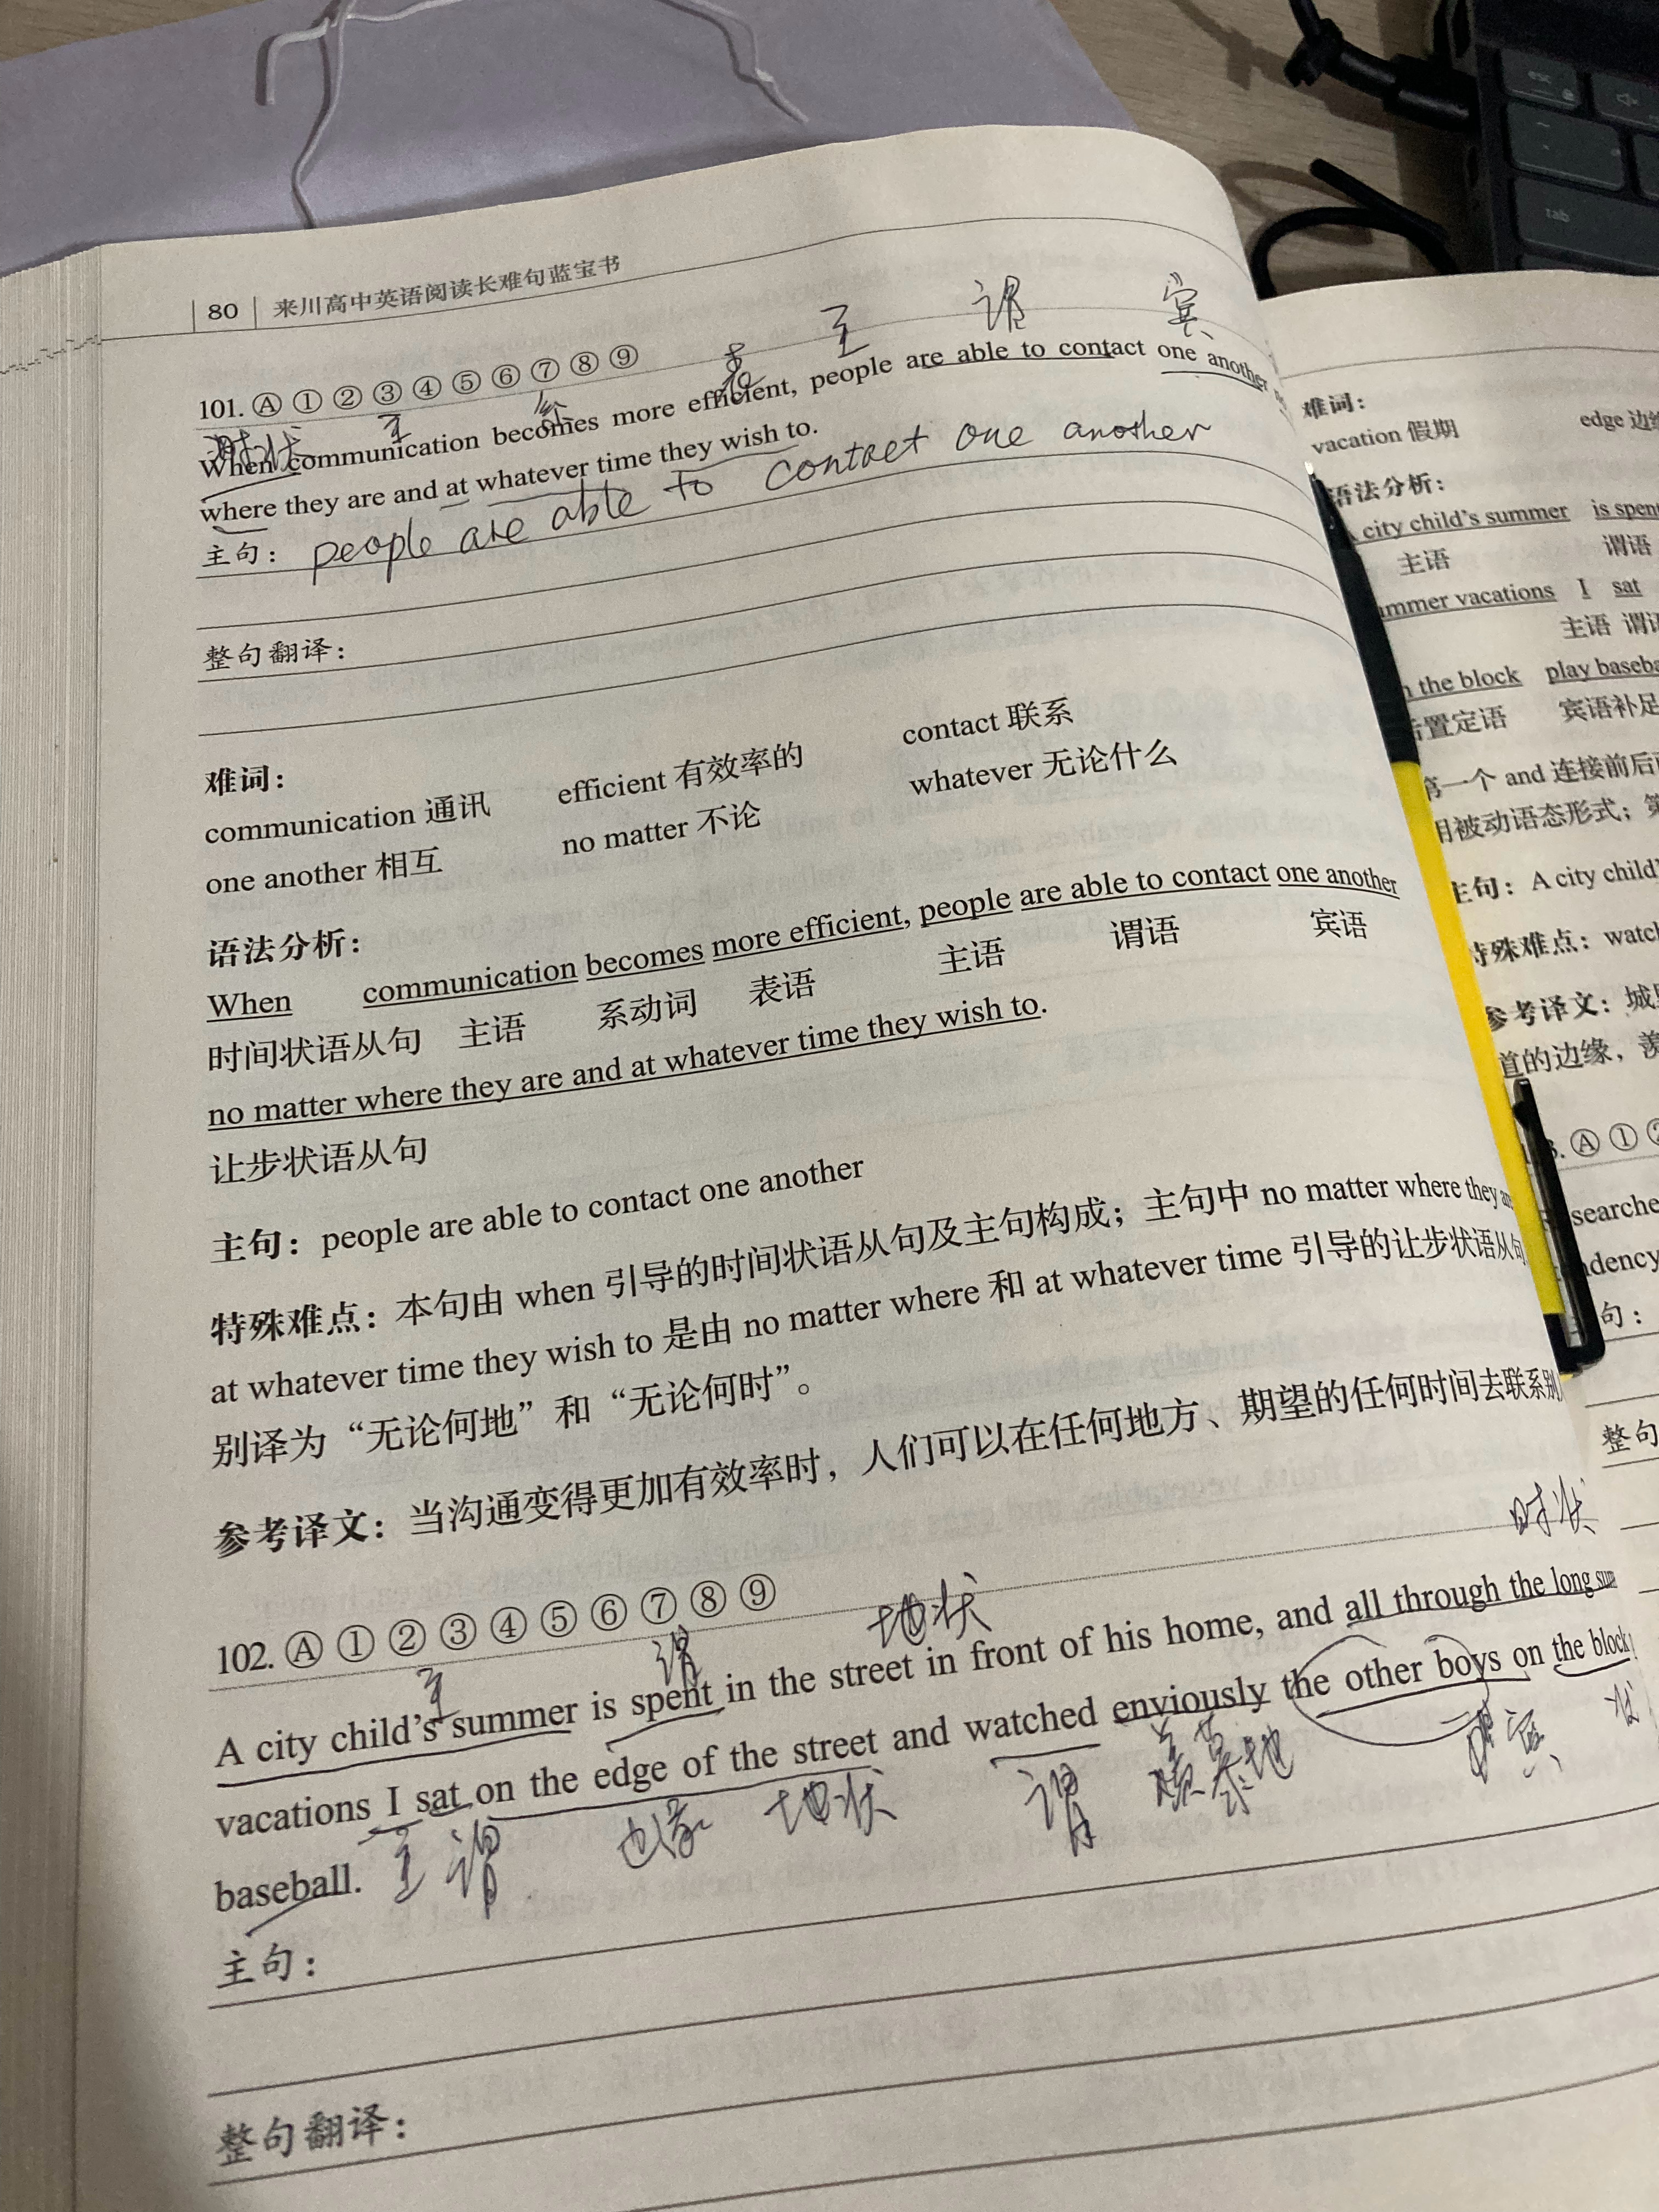 80 来川高中英语阅读长难句蓝宝书
101. Ⓐ ① ② ③ ④ ⑤ ⑥ ⑦ ⑧ ⑨
表 主 谓 宾
When communication becomes more efficient, people are able to contact one another
时状 主 系
where they are and at whatever time they wish to.
主句： people are able to contact one another
整句翻译：
难词：
communication 通讯 efficient 有效率的 contact 联系
one another 相互 no matter 不论 whatever 无论什么
语法分析：
When communication becomes more efficient, people are able to contact one another
时间状语从句 主语 系动词 表语 主语 谓语 宾语
no matter where they are and at whatever time they wish to.
让步状语从句
主句：people are able to contact one another
特殊难点：本句由 when 引导的时间状语从句及主句构成；主句中 no matter where they
at whatever time they wish to 是由 no matter where 和 at whatever time 引导的让步状语从句
别译为“无论何地”和“无论何时”。
参考译文：当沟通变得更加有效率时，人们可以在任何地方、期望的任何时间去联系别
102. Ⓐ ① ② ③ ④ ⑤ ⑥ ⑦ ⑧ ⑨
主 谓 地状 时状
A city child's summer is spent in the street in front of his home, and all through the long
vacations I sat on the edge of the street and watched enviously the other boys on the block
主 谓 边缘 地状 谓 羡慕地
baseball.
主句：
整句翻译：
难词：
vacation 假期 edge
语法分析：
city child's summer is
主语 谓语
vacations I sat
主语
the block play
置定语 宾语补足
第一个 and 连接前后
用被动语态形式；
主句：A city
特殊难点：
参考译文：城
道的边缘，
Ⓐ ①
句：
整句